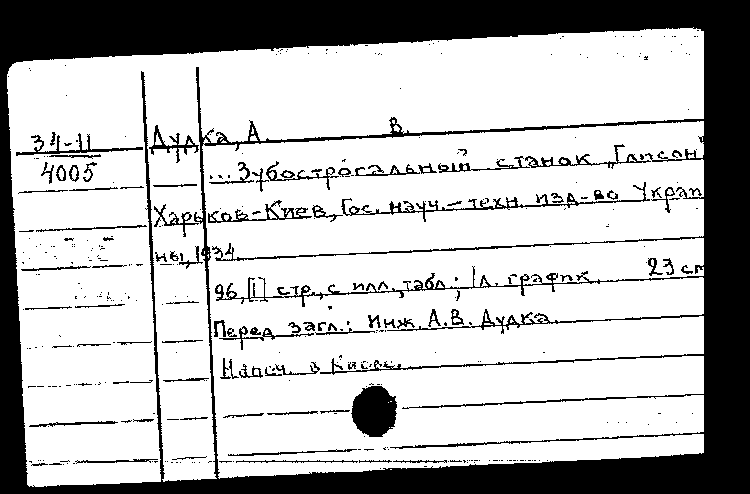 34-11
4005
Дудка, А. В.
... Зубострогальный станок „Глисон"
Харьков-Киев, Гос. науч.-техн. изд-во Украи
ны, 1934.
96, [1] стр., с илл., табл.; 1 л. график. 23 см
Перед загл.: Инж. А.В. Дудка.
Напеч. в Киеве.